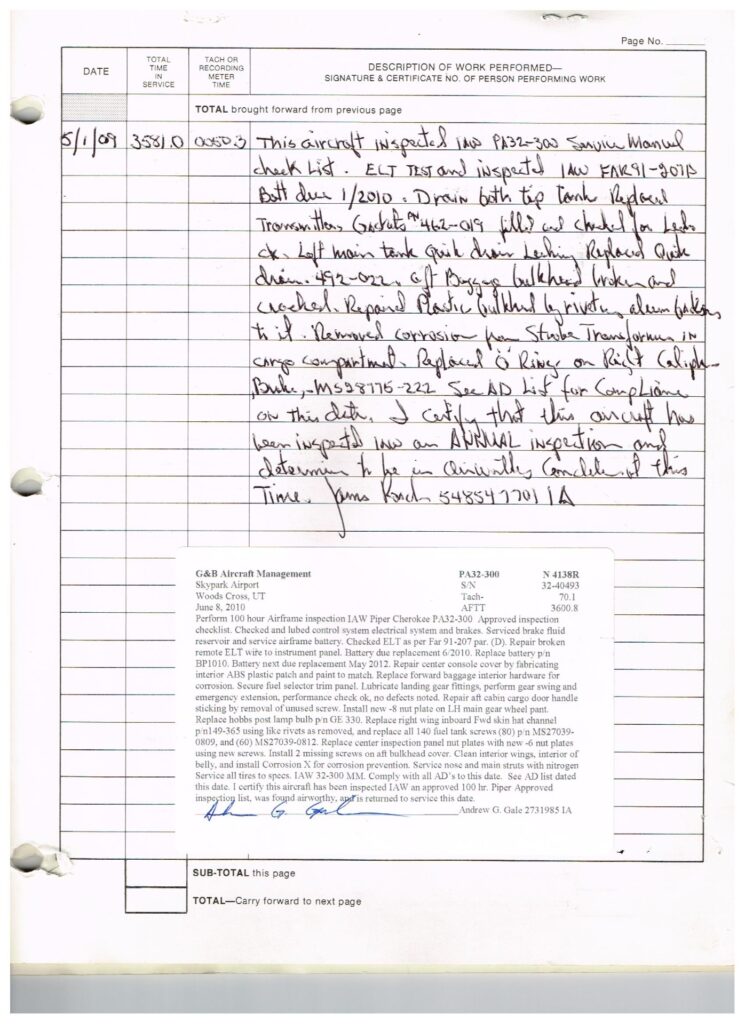 Page No.
DATE
TOTAL
TIME
IN
SERVICE
TACH OR
RECORDING
METER
TIME
DESCRIPTION OF WORK PERFORMED—
SIGNATURE & CERTIFICATE NO. OF PERSON PERFORMING WORK
TOTAL brought forward from previous page
5/1/09 3581.0 0050.3 This aircraft inspected IAW PA32-300 Service Manual
check List. ELT TEST and inspected IAW FAR 91-207D
Batt due 1/2010. Drain both tip tank Replaced
Transmitters Gaskets PN 462-019 filled and checked for Leaks
ok. Left main tank Quick drain Leaking Replaced Quick
drain. 492-022. aft Baggage bulkhead broken and
cracked. Repaired Plastic bulkhead by riveting
to it. Removed corrosion from Strobe Transformer in
cargo compartment. Replaced "O" Rings on Right
Brake, MS28775-222 See AD List for Compliance
on this date. I certify that this aircraft has
been inspected IAW an ANNUAL inspection and
determin to be in Airworthy at this
Time. James 548547701 IA
G&B Aircraft Management PA32-300 N 4138R
Skypark Airport S/N 32-40493
Woods Cross, UT Tach- 70.1
June 8, 2010 AFTT 3600.8
Perform 100 hour Airframe inspection IAW Piper Cherokee PA32-300 Approved inspection
checklist. Checked and lubed control system electrical system and brakes. Serviced brake fluid
reservoir and service airframe battery. Checked ELT as per Far 91-207 par. (D). Repair broken
remote ELT wire to instrument panel. Battery due replacement 6/2010. Replace battery p/n
BP1010. Battery next due replacement May 2012. Repair center console cover by fabricating
interior ABS plastic patch and paint to match. Replace forward baggage interior hardware for
corrosion. Secure fuel selector trim panel. Lubricate landing gear fittings, perform gear swing and
emergency extension, performance check ok, no defects noted. Repair aft cabin cargo door handle
sticking by removal of unused screw. Install new -8 nut plate on LH main gear wheel pant.
Replace hobbs post lamp bulb p/n GE 330. Replace right wing inboard Fwd skin hat channel
p/n149-365 using like rivets as removed, and replace all 140 fuel tank screws (80) p/n MS27039-
0809, and (60) MS27039-0812. Replace center inspection panel nut plates with new -6 nut plates
using new screws. Install 2 missing screws on aft bulkhead cover. Clean interior wings, interior of
belly, and install Corrosion X for corrosion prevention. Service nose and main struts with nitrogen
Service all tires to specs. IAW 32-300 MM. Comply with all AD's to this date. See AD list dated
this date. I certify this aircraft has been inspected IAW an approved 100 hr. Piper Approved
inspection list, was found airworthy, and is returned to service this date.
Andrew G. Gale 2731985 IA
SUB-TOTAL this page
TOTAL—Carry forward to next page